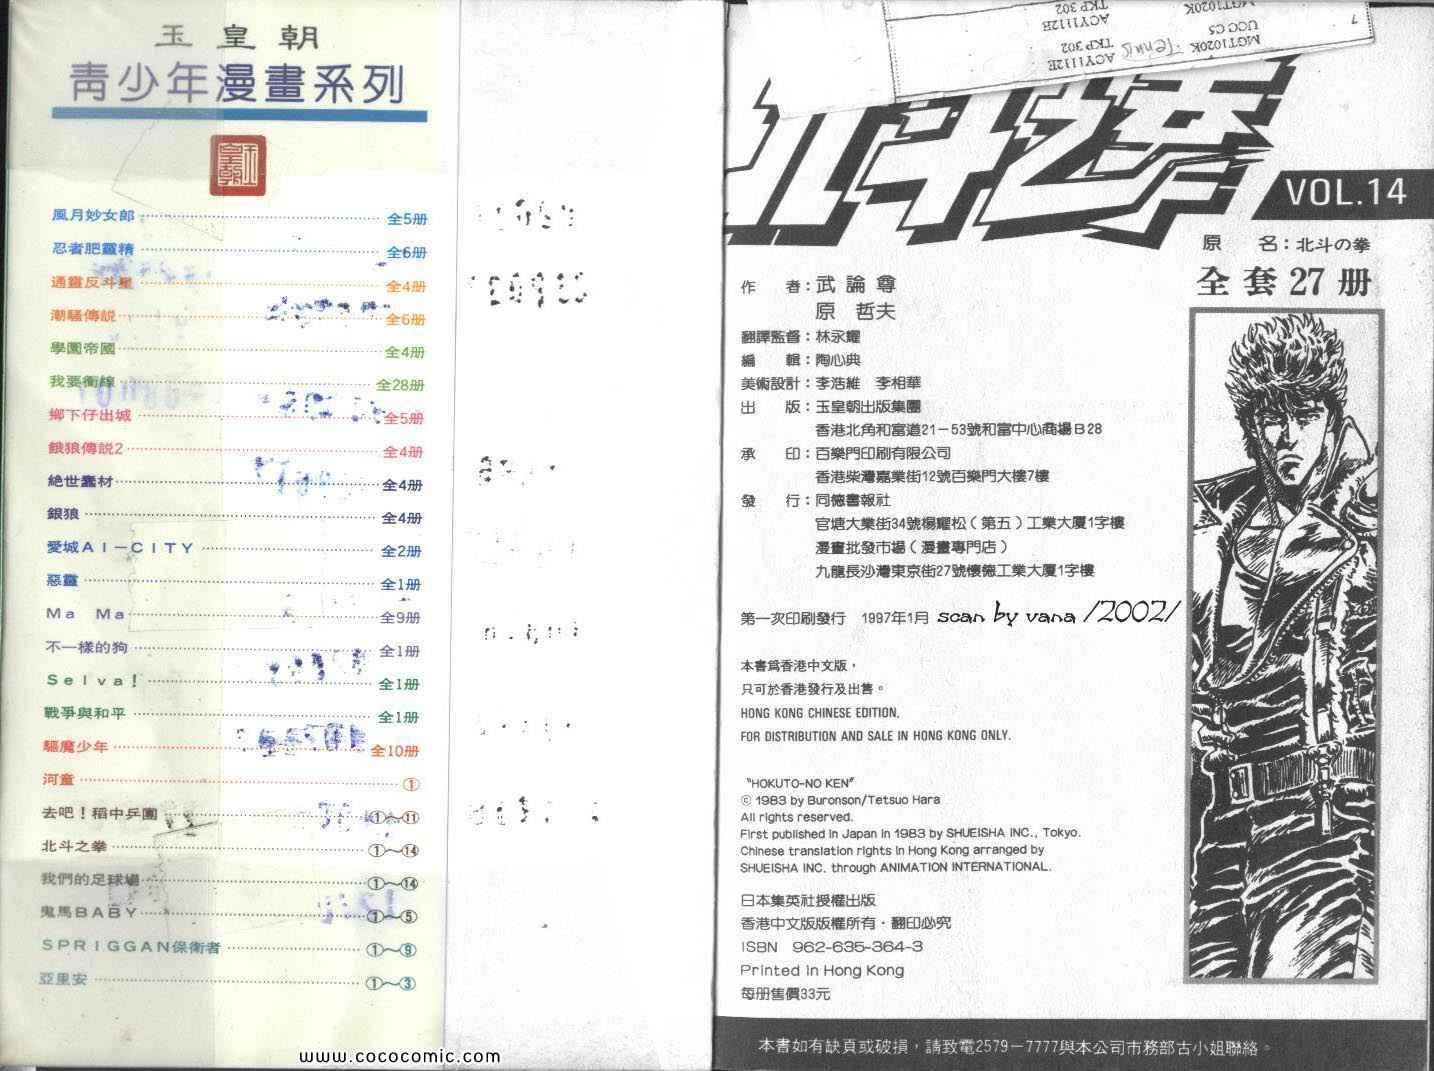 玉皇朝
青少年漫畫系列
玉皇朝
風月妙女郎 全5册
忍者肥靈精 全6册
通靈反斗星 全4册
潮騷傳說 全6册
學園帝國 全4册
我要衝線 全28册
鄉下仔出城 全5册
餓狼傳說2 全4册
絕世蠹材 全4册
銀狼 全4册
愛城AI-CITY 全2册
惡靈 全1册
Ma Ma 全9册
不一樣的狗 全1册
Selva! 全1册
戰爭與和平 全1册
驅魔少年 全10册
河童 ①
去吧!稻中乒團 ①~⑪
北斗之拳 ①~⑭
我們的足球場 ①~⑭
鬼馬BABY ①~⑤
SPRIGGAN保衛者 ①~⑨
亞里安 ①~③
www.cococomic.com
MGT1020K
UCC C5
MGT1020K
TKP 302
ACY1112E
TKP 302
ACY1112E
Tennis
7
北斗之拳
VOL.14
原 名:北斗の拳
全套27册
作 者:武論尊
原 哲夫
翻譯監督:林永耀
編 輯:陶心典
美術設計:李浩維 李相華
出 版:玉皇朝出版集團
香港北角和富道21-53號和富中心商場B28
承 印:百樂門印刷有限公司
香港柴灣嘉業街12號百樂門大樓7樓
發 行:同德書報社
官塘大業街34號楊耀松(第五)工業大廈1字樓
漫畫批發市場(漫畫專門店)
九龍長沙灣東京街27號懷德工業大廈1字樓
第一次印刷發行 1997年1月 scan by vana /2002/
本書爲香港中文版,
只可於香港發行及出售。
HONG KONG CHINESE EDITION,
FOR DISTRIBUTION AND SALE IN HONG KONG ONLY.
"HOKUTO-NO KEN"
© 1983 by Buronson/Tetsuo Hara
All rights reserved.
First published in Japan in 1983 by SHUEISHA INC., Tokyo.
Chinese translation rights in Hong Kong arranged by
SHUEISHA INC. through ANIMATION INTERNATIONAL.
日本集英社授權出版
香港中文版版權所有·翻印必究
ISBN 962-635-364-3
Printed in Hong Kong
每册售價33元
本書如有缺頁或破損,請致電2579-7777與本公司市務部古小姐聯絡。